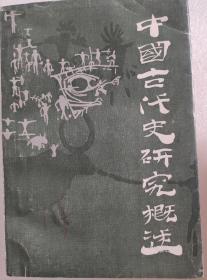 中國古代史研究概述